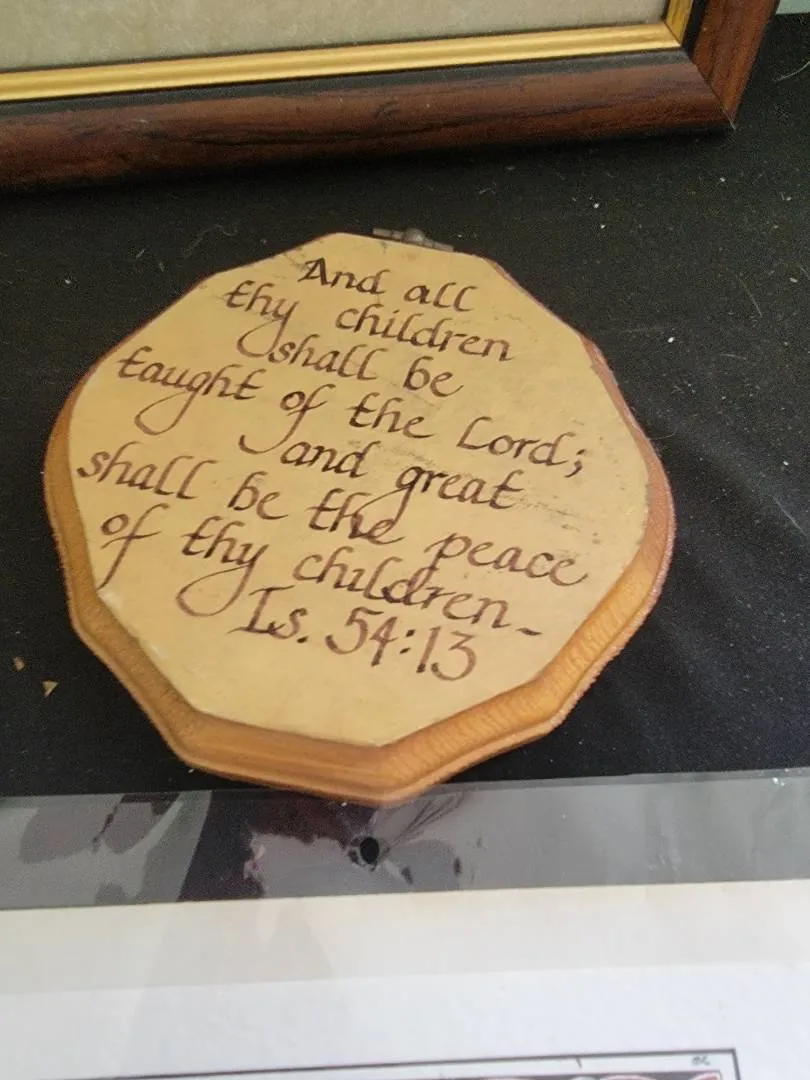 And all
thy children
shall be
taught of the Lord;
and great
shall be the peace
of thy children-
Is. 54:13